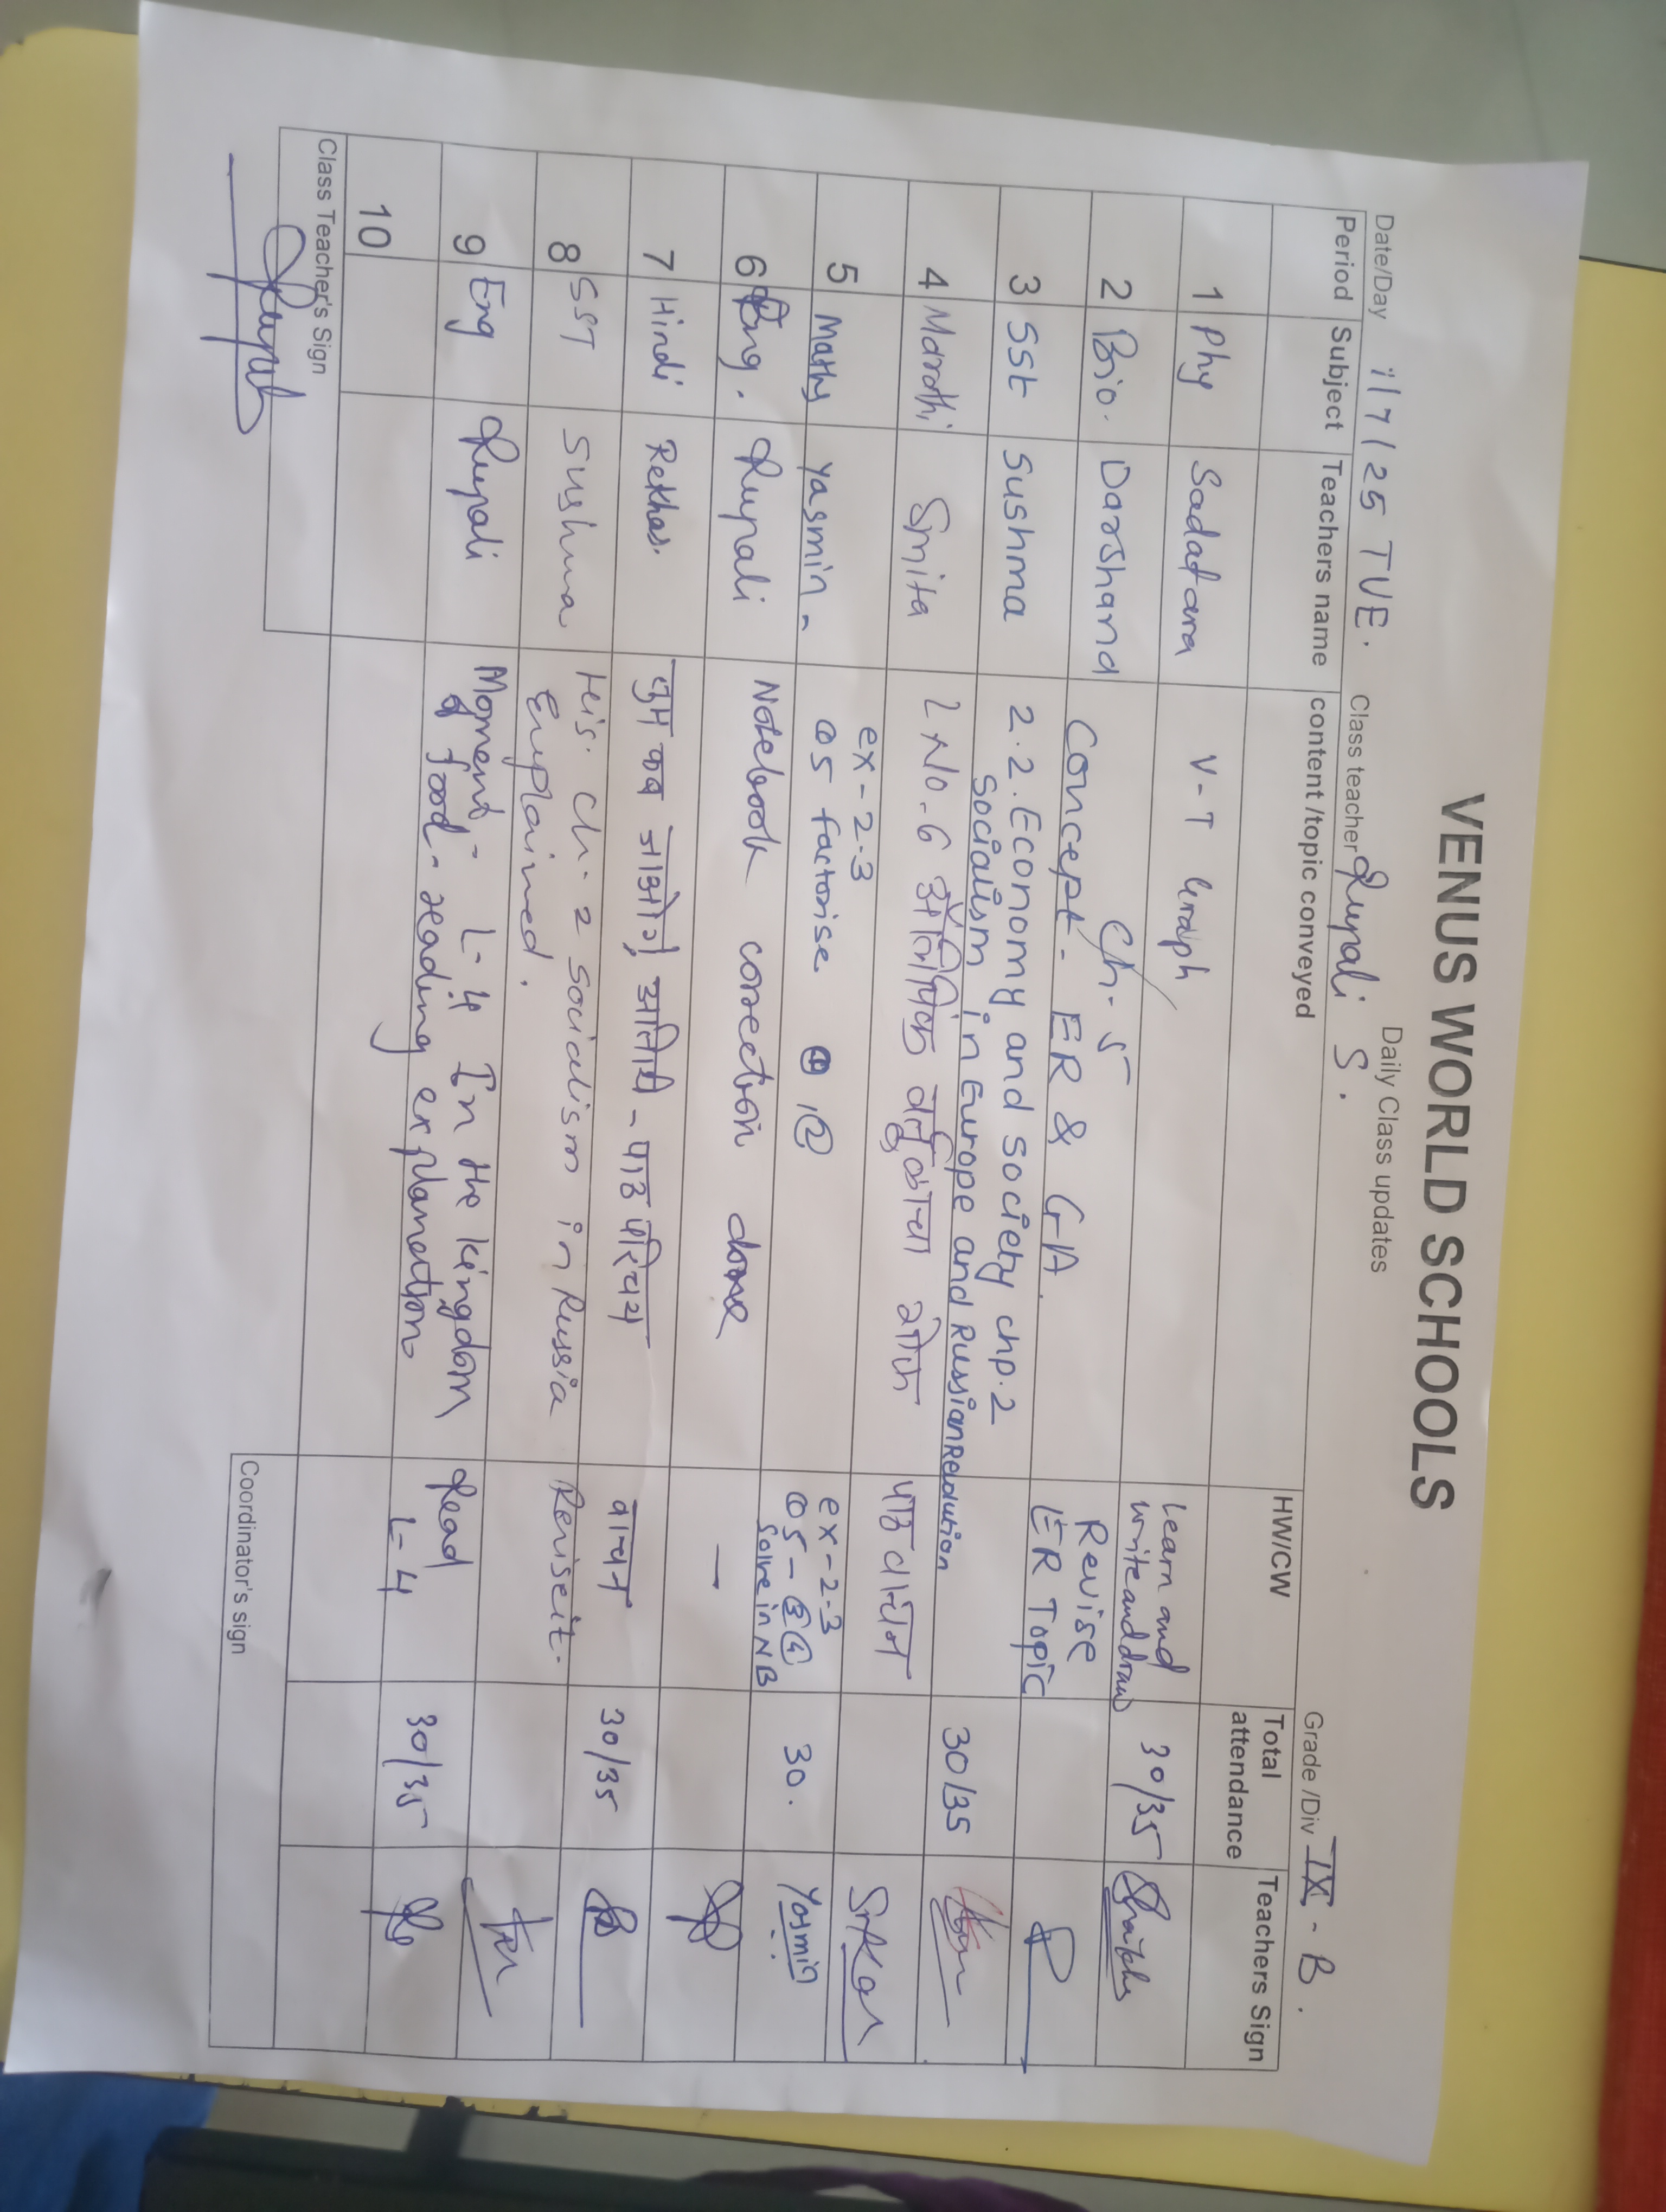 VENUS WORLD SCHOOLS
Daily Class updates
Date/Day 1/7/25 TUE. Class teacher Rupali S. Grade /Div IX - B.
Period Subject Teachers name content /topic conveyed HW/CW Total attendance Teachers Sign
1 Phy Sadafara V-T Graph Learn and write and draw 30/35
2 Bio. Darshana Ch-5 Revise
Concept- ER & GA. ER Topic
3 SSt Sushma 2.2. Economy and society chp.2 30/35
Socialism in Europe and Russian Revolution
4 Marathi Smita L No-6 वर्तुळाचा पाठ वाचन
5 Maths Yasmin- ex-2.3 ex-2.3 30. Yasmin
Q5 factorise ① ② Q5-③④
Solve in NB
6 Eng. Rupali Notebook correction done —
7 Hindi Rekha S. तुम कब जाओगे, अतिथि - पाठ परिचय वाचन 30/35
8 SST Sushma His. Ch-2 Socialism in Russia Revise it.
Explained.
9 Eng Rupali Moment- L-4 In the kingdom Read 30/35
of food- reading explanation L-4
10
Class Teacher's Sign Coordinator's sign